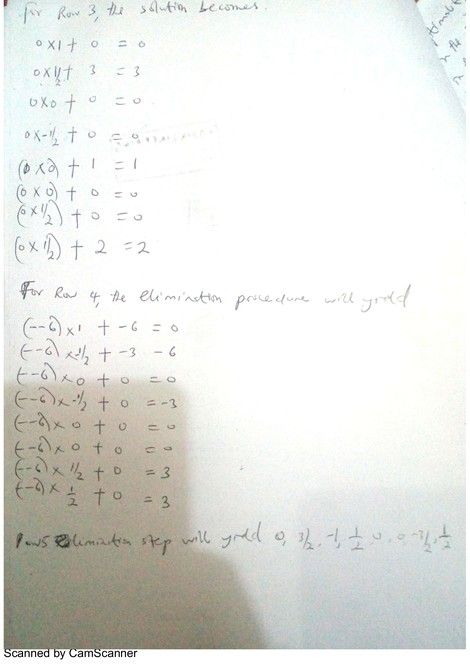 for Row 3, the solution becomes.
0x1 + 0 = 0
0x1/2 + 3 = 3
0x0 + 0 = 0
0x-1/2 + 0 = 0
(0x0) + 1 = 1
(0x0) + 0 = 0
(0x1/2) + 0 = 0
(0x1/2) + 2 = 2
For Row 4, the elimination procedure will yield
(--6)x1 + -6 = 0
(--6)x-1/2 + -3 - 6
(--6)x0 + 0 = 0
(--6)x-1/2 + 0 = -3
(--6)x0 + 0 = 0
(--6)x0 + 0 = 0
(--6)x1/2 + 0 = 3
(--6)x1/2 + 0 = 3
elimination step will yield 0, 3/2, -1, 1/2, 0, 0, -3/2, 1/2
Scanned by CamScanner